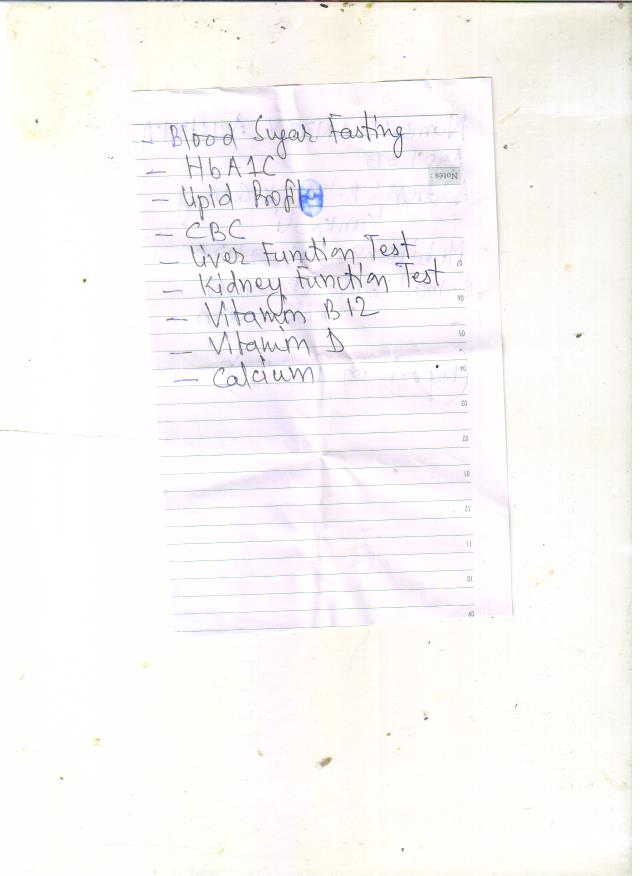 - Blood Sugar Fasting
- HbA1C
- Lipid Profil
- CBC
- Liver Function Test
- Kidney Function Test
- Vitamin B12
- Vitamin D
- Calcium
Notes :
07
06
05
04
03
02
01
12
11
10
09